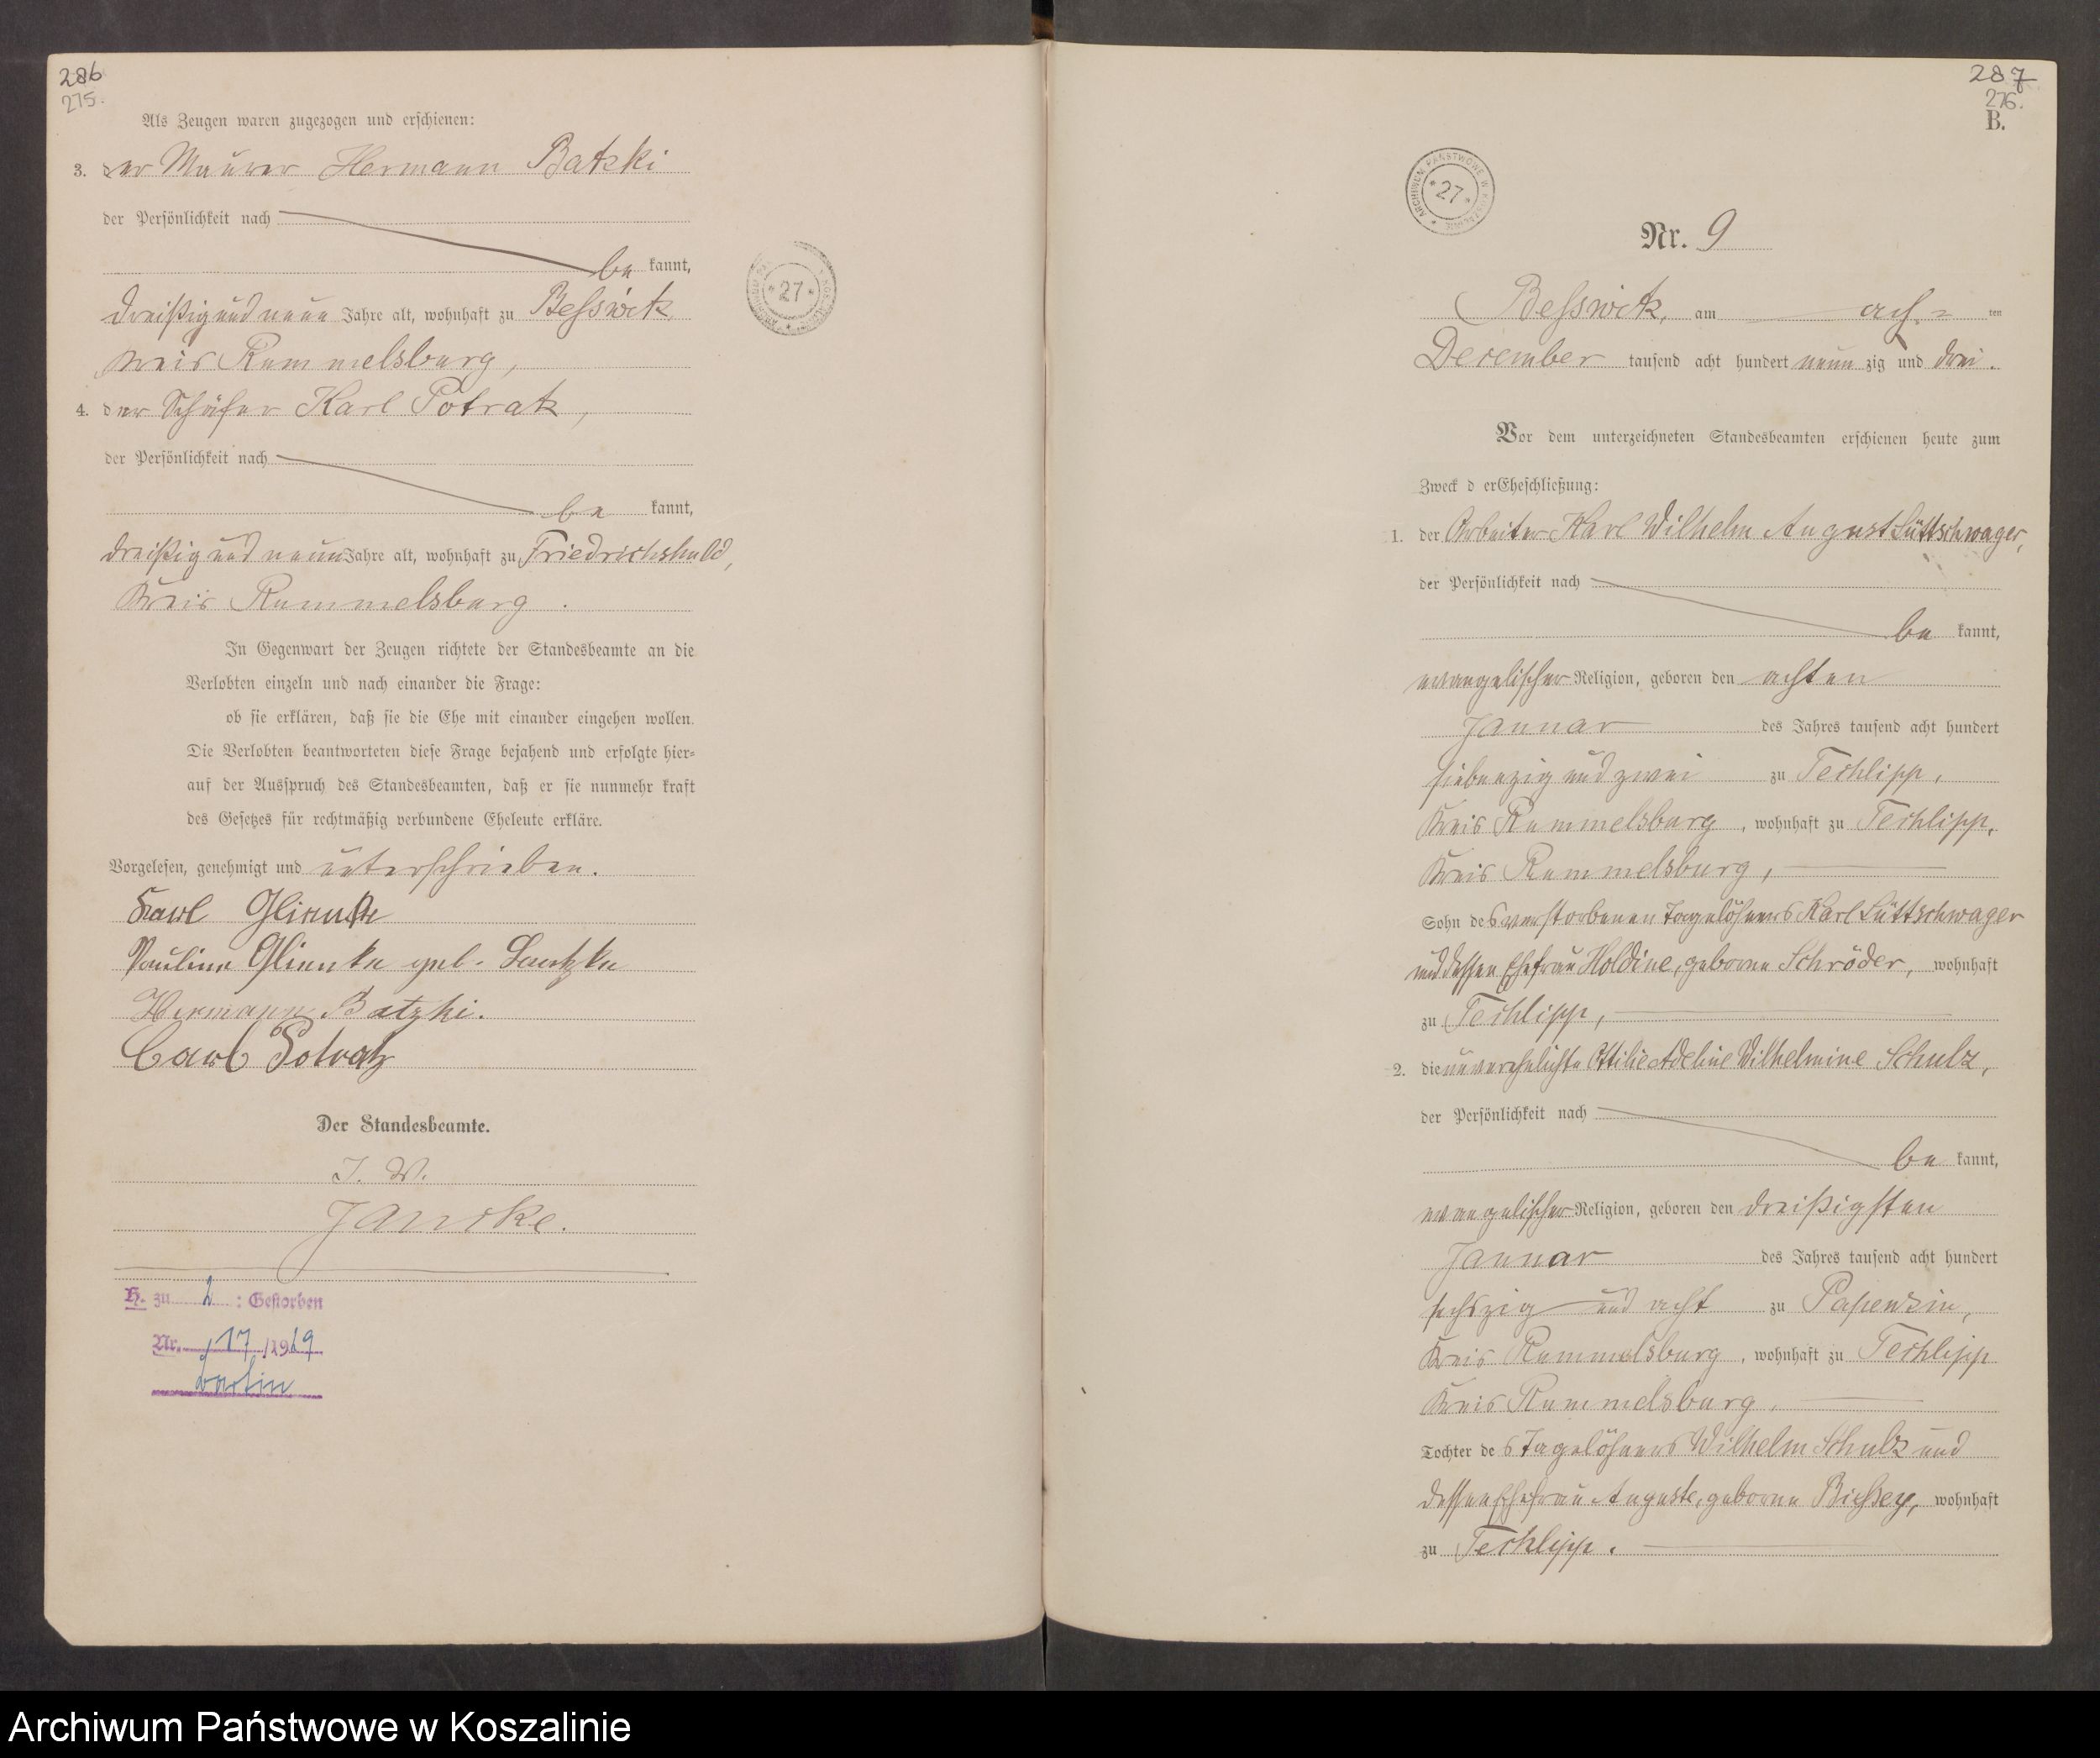 286
275.
Als Zeugen waren zugezogen und erschienen:
3. der Maurer Hermann Batzki
der Persönlichkeit nach
be kannt,
dreißig und neun Jahre alt, wohnhaft zu Besswitz
Kreis Rummelsburg,
4. der Schäfer Karl Potratz,
der Persönlichkeit nach
be kannt,
dreißig und neun Jahre alt, wohnhaft zu Friedrichshuld,
Kreis Rummelsburg.
In Gegenwart der Zeugen richtete der Standesbeamte an die
Verlobten einzeln und nach einander die Frage:
ob sie erklären, daß sie die Ehe mit einander eingehen wollen.
Die Verlobten beantworteten diese Frage bejahend und erfolgte hier-
auf der Ausspruch des Standesbeamten, daß er sie nunmehr kraft
des Gesetzes für rechtmäßig verbundene Eheleute erkläre.
Vorgelesen, genehmigt und unterschrieben.
Karl Glienke
Pauline Glienke geb.
Hermann Batzki.
Carl Potratz
Der Standesbeamte.
Jancke.
H. zu 2 : Gestorben
Nr. 17/1919
Bartin
* 27 *
287
276.
B.
ARCHIWUM PAŃSTWOWE W KOSZALINIE
* 27 *
Nr. 9
Besswitz, am ach- ten
December tausend acht hundert neun zig und drei.
Vor dem unterzeichneten Standesbeamten erschienen heute zum
Zweck d er Eheschließung:
1. der Arbeiter Karl Wilhelm August Lüttschwager,
der Persönlichkeit nach
be kannt,
evangelischer Religion, geboren den achten
Januar des Jahres tausend acht hundert
siebenzig und zwei zu Techlipp,
Kreis Rummelsburg, wohnhaft zu Techlipp,
Kreis Rummelsburg,
Sohn des verstorbenen Tagelöhners Karl Lüttschwager
und dessen Ehefrau Holdine, geborene Schröder, wohnhaft
zu Techlipp,
2. die unverehelichte Ottilie Adeline Wilhelmine Schulz,
der Persönlichkeit nach
be kannt,
evangelischer Religion, geboren den dreißigsten
Januar des Jahres tausend acht hundert
sechszig und acht zu Papenzin,
Kreis Rummelsburg, wohnhaft zu Techlipp
Kreis Rummelsburg,
Tochter des Tagelöhners Wilhelm Schulz und
dessen Ehefrau Auguste, geborene wohnhaft
zu Techlipp.
Archiwum Państwowe w Koszalinie